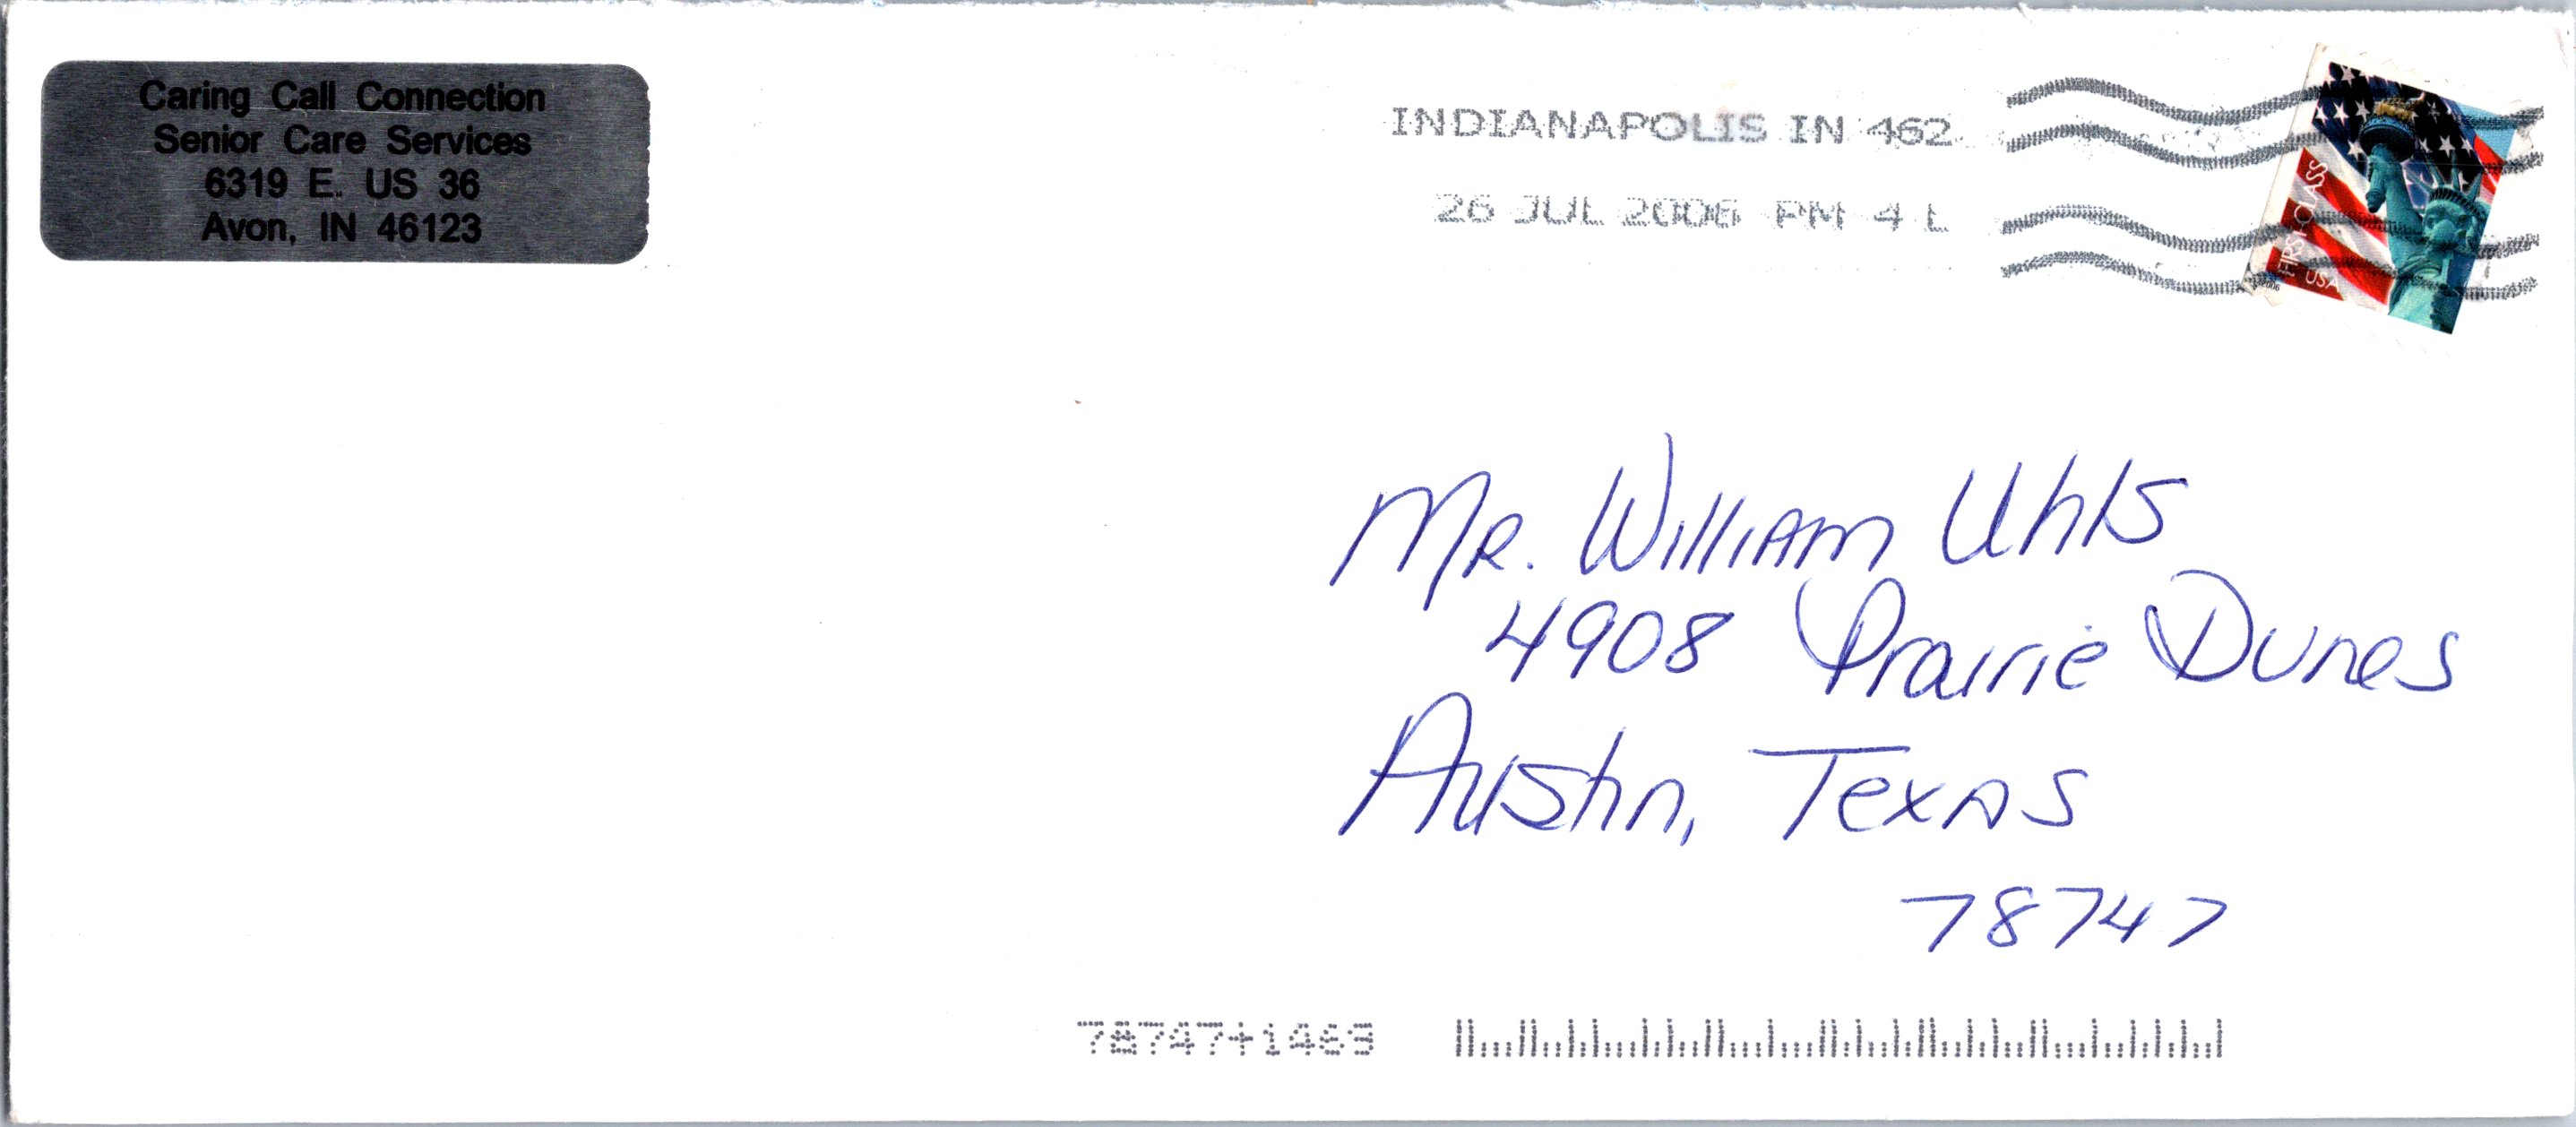 Caring Call Connection
Senior Care Services
6319 E. US 36
Avon, IN 46123
INDIANAPOLIS IN 462
26 JUL 2006 PM 4 L
FIRST-CLASS
USA
2006
Mr. William Uhls
4908 Prairie Dunes
Austin, Texas
78747
78747+1463